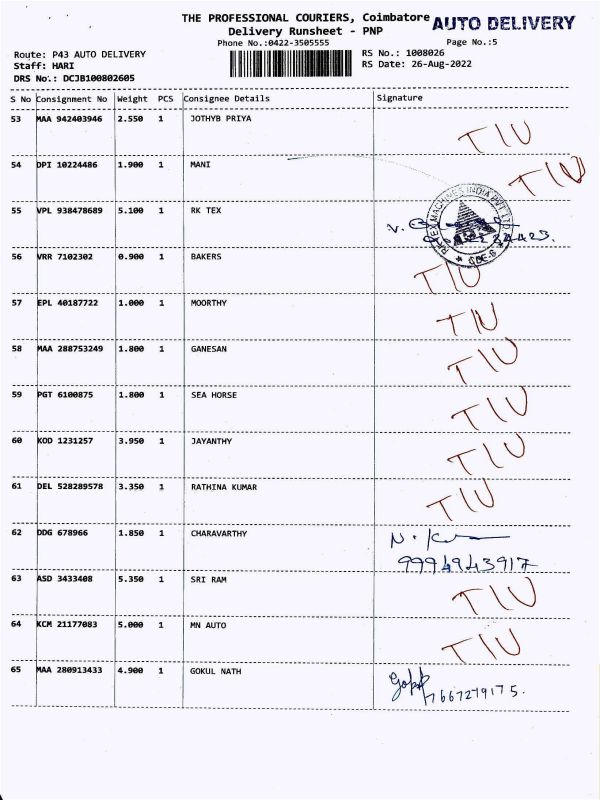 THE PROFESSIONAL COURIERS, Coimbatore AUTO DELIVERY
Delivery Runsheet - PNP
Phone No.:0422-3505555 Page No.:5
Route: P43 AUTO DELIVERY RS No.: 1008026
Staff: HARI RS Date: 26-Aug-2022
DRS No.: DCJB100802605
S No Consignment No Weight PCS Consignee Details Signature
53 MAA 942403946 2.550 1 JOTHYB PRIYA TIU
54 DPI 10224486 1.900 1 MANI TIU
55 VPL 938478689 5.100 1 RK TEX
56 VRR 7102302 0.900 1 BAKERS TIU
57 EPL 40187722 1.000 1 MOORTHY TIU
58 MAA 288753249 1.800 1 GANESAN TIU
59 PGT 6100875 1.800 1 SEA HORSE TIU
60 KOD 1231257 3.950 1 JAYANTHY TIU
61 DEL 528289578 3.350 1 RATHINA KUMAR TIU
62 DDG 678966 1.850 1 CHARAVARTHY
9994943917
63 ASD 3433408 5.350 1 SRI RAM TIU
64 KCM 21177083 5.000 1 MN AUTO TIU
65 MAA 280913433 4.900 1 GOKUL NATH
7667279175.